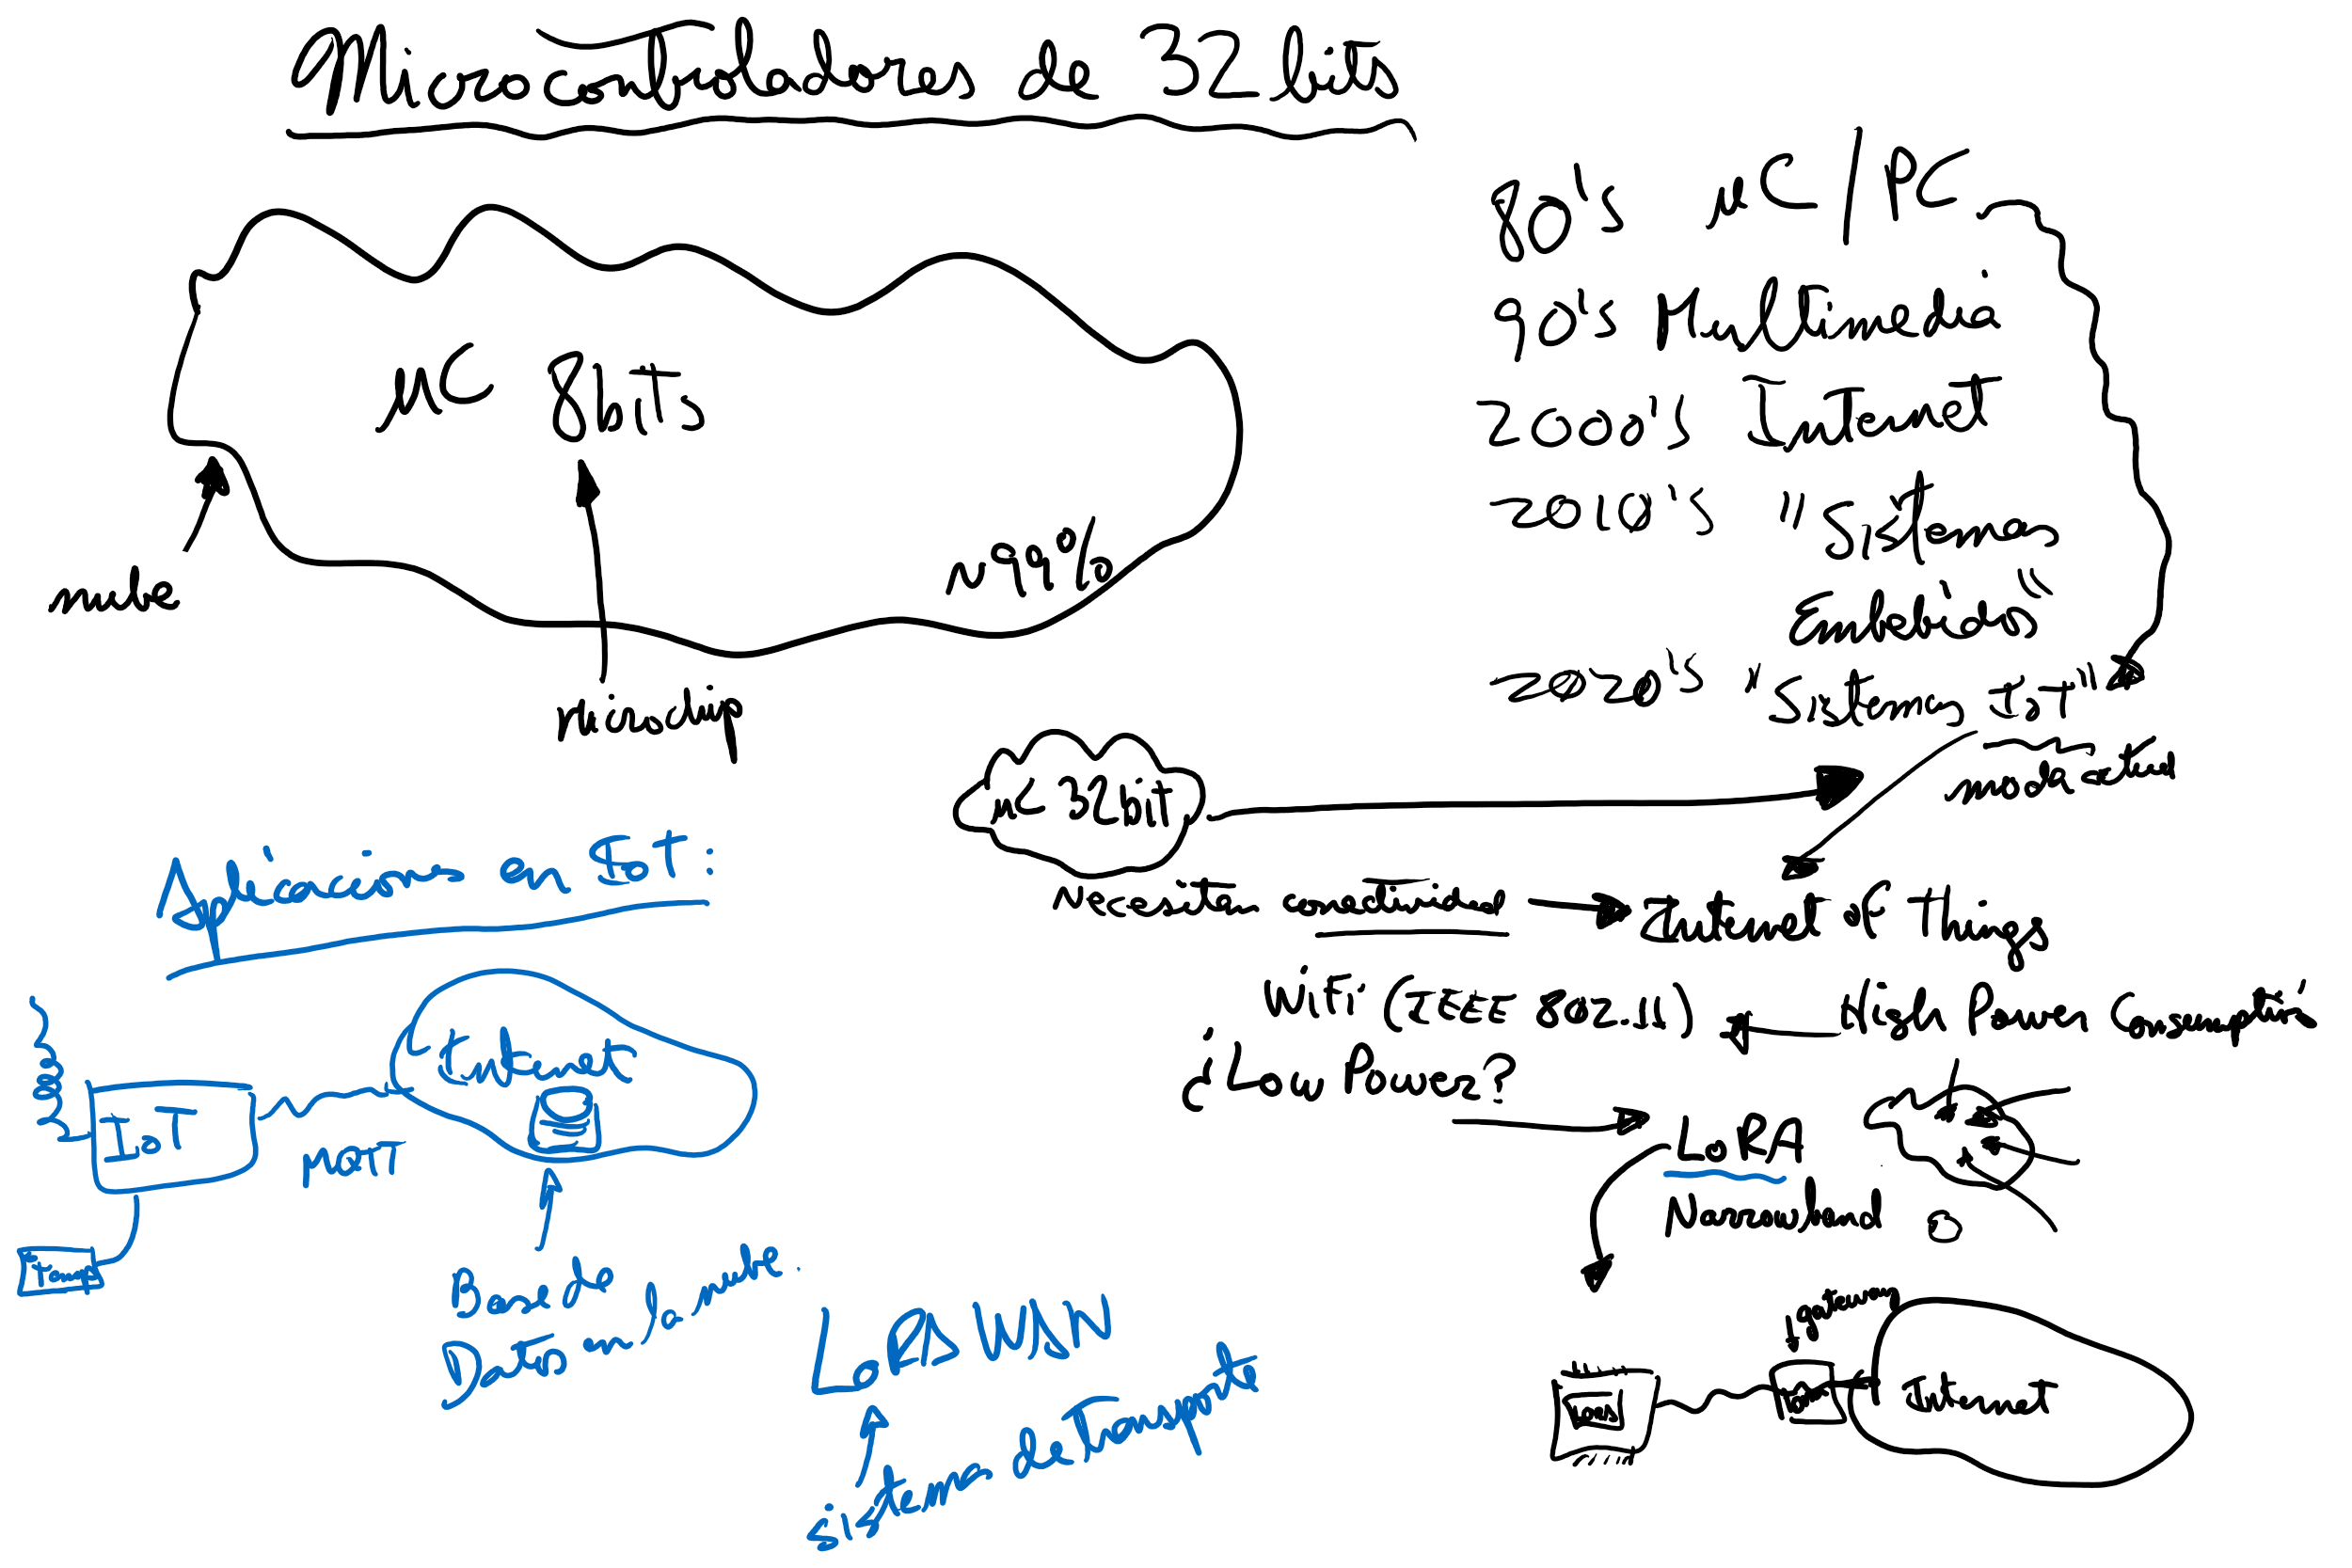 Microcontroladores de 32 bits
80's µC / PC
90's Multimedia
2000's Internet
2010's "Sistemas
Embebidos"
2020's "Sistemas IoT"
moda actual
µC 8bits
~99%
nube
microchip
µC 32 bit
Necesitan conectividad
Internet of Things
WiFi (IEEE 802.11)
High Power Consumption
¿Low Power?
LoRA
Narrowband
gateway
LoRa
Internet
Aplicaciones en IoT:
Internet
IoT
MQTT
Temp
Base de
Datos en la nube.
LoRAWAN
sistema de Transporte